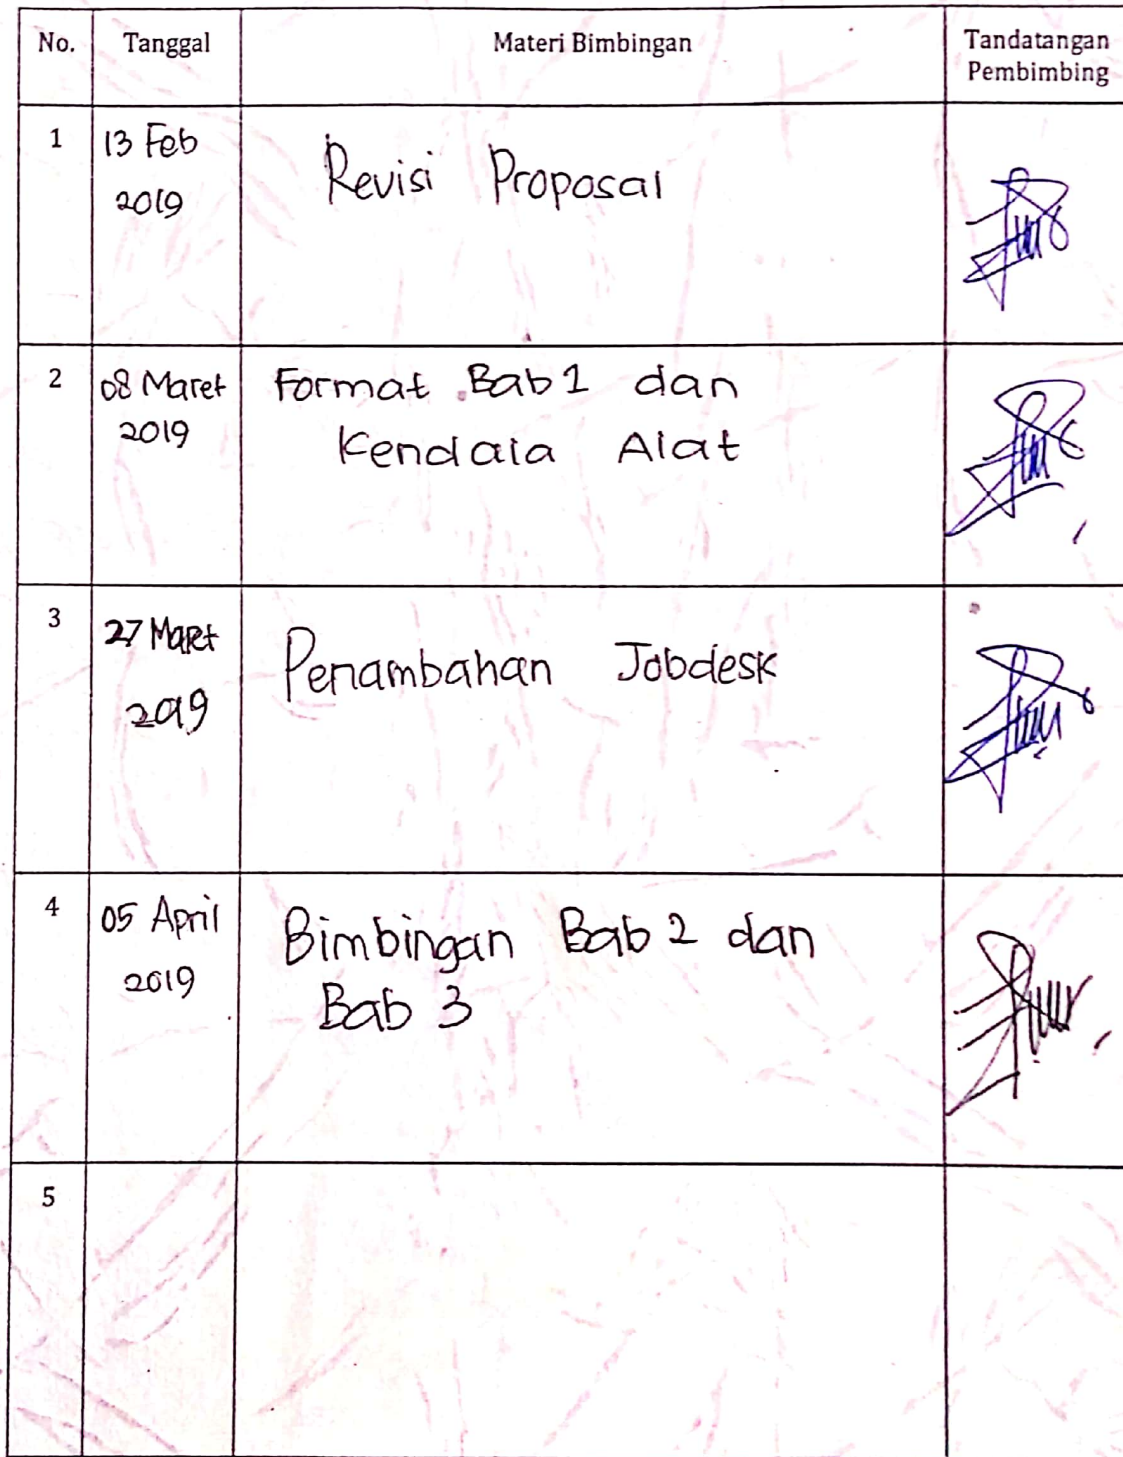 No. Tanggal Materi Bimbingan Tandatangan
Pembimbing
1 13 Feb Revisi Proposal
2019
2 08 Maret Format Bab 1 dan
2019 Kendala Alat
3 27 Maret Penambahan Jobdesk
2019
4 05 April Bimbingan Bab 2 dan
2019 Bab 3
5